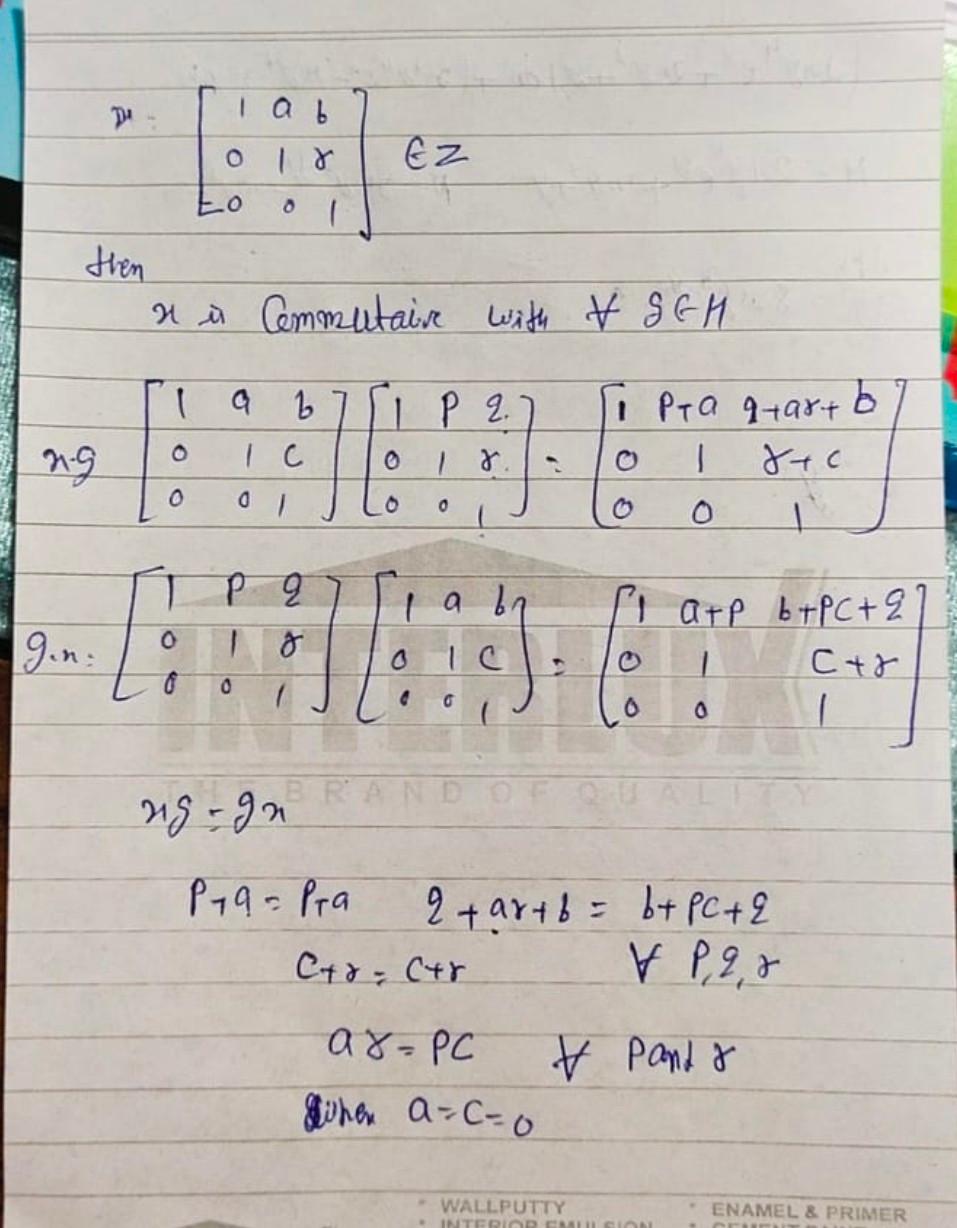 x = [ 1 a b
0 1 r
0 0 1 ] ∈ Z
then
x is Commutaive with ∀ g ∈ H
x·g [ 1 a b ; 0 1 c ; 0 0 1 ] [ 1 p q ; 0 1 r ; 0 0 1 ] = [ 1 p+a q+ar+b ; 0 1 r+c ; 0 0 1 ]
g.x = [ 1 p q ; 0 1 r ; 0 0 1 ] [ 1 a b ; 0 1 c ; 0 0 1 ] = [ 1 a+p b+pc+q ; 0 1 c+r ; 0 0 1 ]
INTERLUX
THE BRAND OF QUALITY
xg = gx
p+a = p+a q+ar+b = b+pc+q
c+r = c+r ∀ p,q,r
ar = pc ∀ p and r
when a=c=0
* WALLPUTTY * ENAMEL & PRIMER
* INTERIOR EMULSION